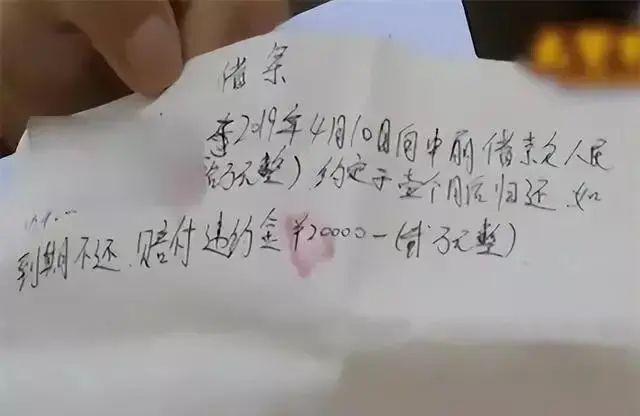 借条
2019年4月10日向申丽借款人民
万元整) 约定于壹个月后归还.如
到期不还.赔付违约金¥20000-(贰万元整)